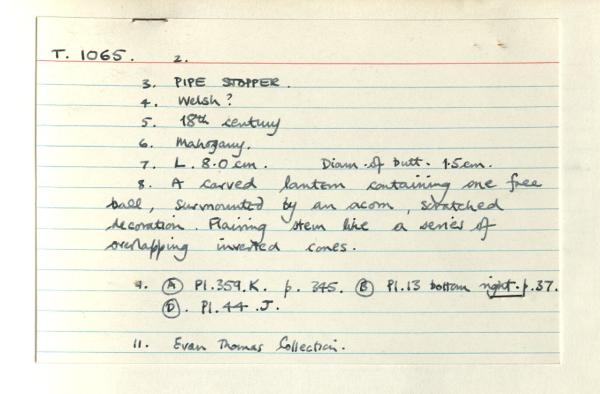 T. 1065. 2.
3. PIPE STOPPER.
4. Welsh?
5. 18th century
6. Mahogany.
7. L. 8.0 cm. Diam. of butt. 1.5cm.
8. A carved lantern containing one free
ball, surmounted by an acorn, scratched
decoration. Flairing stem like a series of
overlapping inverted cones.
9. (A) Pl.359.K. p. 345. (B) Pl.13 bottom right. p.37.
(D). Pl.44.J.
11. Evan Thomas Collection.